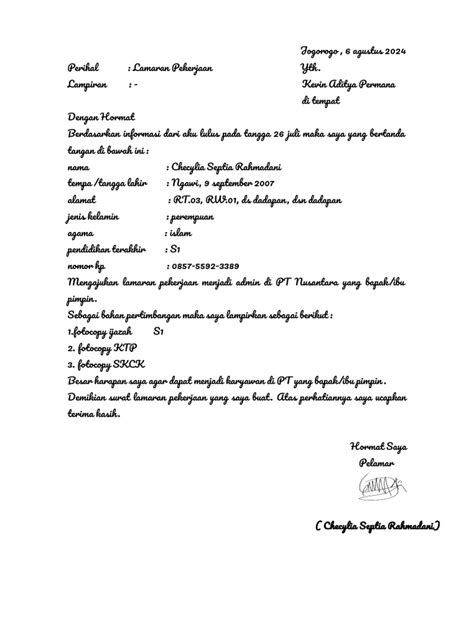 Jogorogo , 6 agustus 2024
Perihal : Lamaran Pekerjaan Yth.
Lampiran : - Kevin Aditya Permana
di tempat
Dengan Hormat
Berdasarkan informasi dari aku lulus pada tangga 26 juli maka saya yang bertanda
tangan di bawah ini :
nama : Checylia Septia Rahmadani
tempa /tangga lahir : Ngawi, 9 september 2007
alamat : RT.03, RW.01, ds dadapan, dsn dadapan
jenis kelamin : perempuan
agama : islam
pendidikan terakhir : S1
nomor hp : 0857-5592-3389
Mengajukan lamaran pekerjaan menjadi admin di PT Nusantara yang bapak/ibu
pimpin.
Sebagai bahan pertimbangan maka saya lampirkan sebagai berikut :
1.fotocopy ijazah S1
2. fotocopy KTP
3. fotocopy SKCK
Besar harapan saya agar dapat menjadi karyawan di PT yang bapak/ibu pimpin .
Demikian surat lamaran pekerjaan yang saya buat. Atas perhatiannya saya ucapkan
terima kasih.
Hormat Saya
Pelamar
( Checylia Septia Rahmadani)